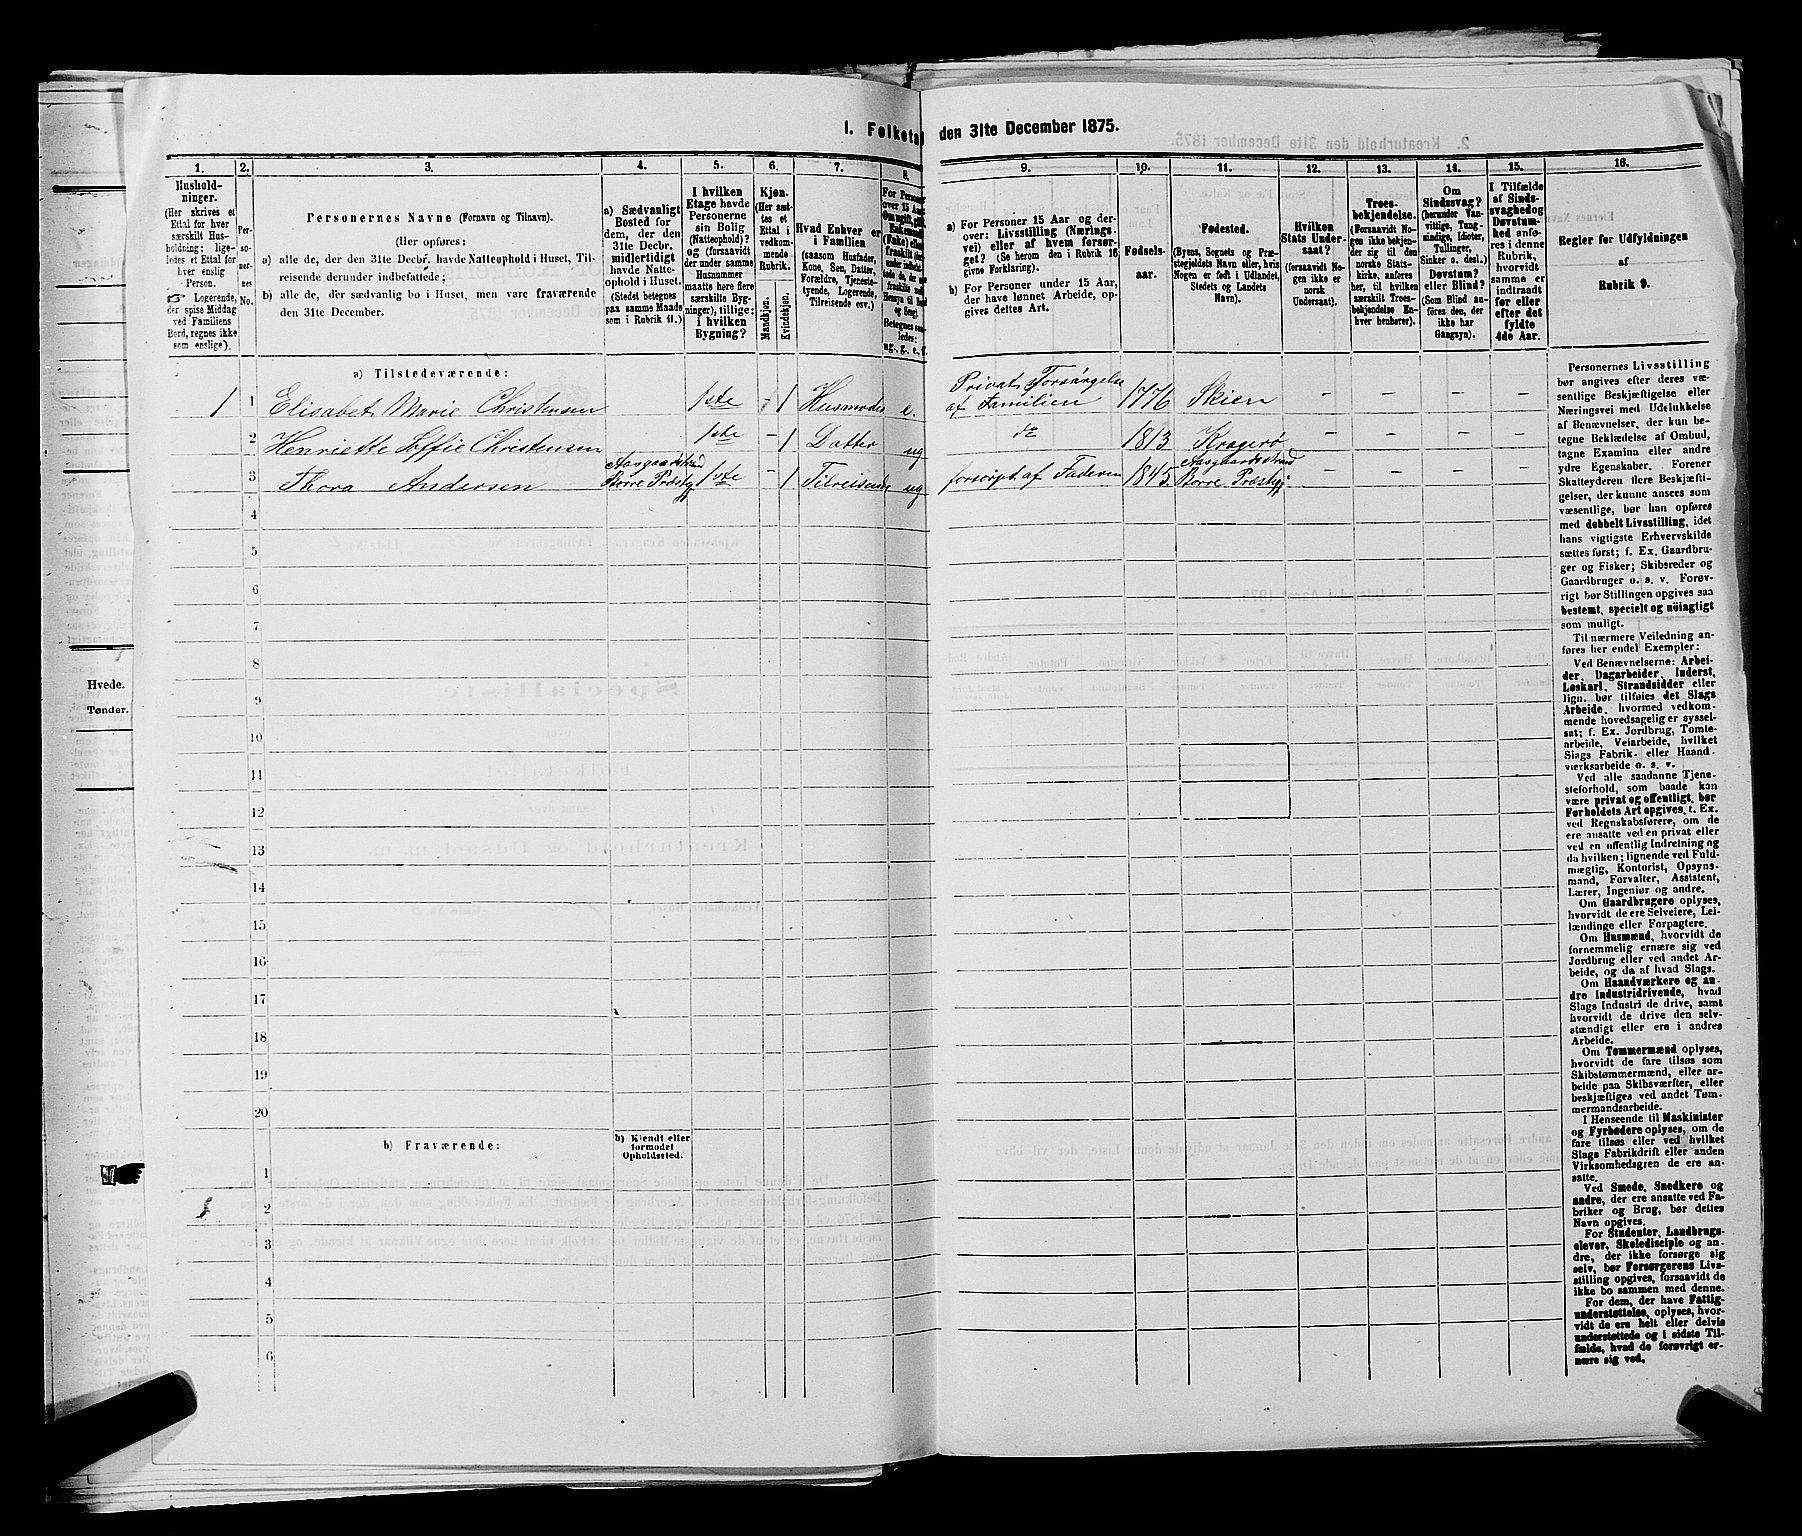 1. Folketal den 31te December 1875.
1.
2.
3.
4.
5.
6.
7.
8.
9.
10.
11.
12.
13.
14.
15.
16.
Hushold-
ninger.
(Her skrives et
Ettal for hver
særskilt Hus-
holdning; lige-
ledes et Ettal for
hver enslig
Person.
☞ Logerende,
der spise Middag
ved Familiens
Bord, regnes ikke
som enslige).
Per-
so-
ner-
nes
No.
Personernes Navne (Fornavn og Tilnavn).
(Her opføres:
a) alle de, der den 31te Decbr. havde Natteophold i Huset, Til-
reisende derunder indbefattede;
b) alle de, der sædvanlig bo i Huset, men vare fraværende
den 31te December.
a) Sædvanligt
Bosted for
dem, der den
31te Decbr.
midlertidigt
havde Natte-
ophold i Huset.
(Stedet betegnes
paa samme Maade
som i Rubrik 11.)
I hvilken
Etage havde
Personerne
sin Bolig
(Natteophold)?
og (forsaavidt
der under samme
Husnummer
maatte høre flere
særskilte Byg-
ninger), tillige:
i hvilken
Bygning?
Kjøn.
(Her sæt-
tes et
Ettal i
vedkom-
mende
Rubrik.
Mandkjøn.
Kvindekjøn.
Hvad Enhver er
i Familien
(saasom Husfader,
Kone, Søn, Datter,
Forældre, Tjeneste-
tyende, Logerende,
Tilreisende osv.)
a) For Personer 15 Aar og der-
over: Livsstilling (Nærings-
vei) eller af hvem forsør-
get? (Se herom den i Rubrik 16
givne Forklaring).
b) For Personer under 15 Aar,
der have lønnet Arbeide, op-
gives dettes Art.
Fødsels-
aar.
Fødested.
(Byens, Sognets og Præ-
stegjeldets Navn eller, hvis
Nogen er født i Udlandet,
Stedets og Landets
Navn).
Hvilken
Stats Under-
saat?
(forsaavidt No-
gen ikke er
norsk
Undersaat).
Troes-
bekjendelse.
(Forsaavidt No-
gen ikke bekjen-
der sig til den
norske Stats-
kirke, anføres
her, til hvilken
særskilt Troes-
bekjendelse En-
hver henhører).
Om
Sindssvag?
(herunder Van-
vittige, Tung-
sindige, Idioter,
Tullinger,
Sinker o. desl.)
Døvstum?
eller Blind?
(Som Blind an-
føres den, der
ikke har
Gangsyn).
I Tilfælde
af Sinds-
svaghed og
Døvstum-
hed anfø-
res i denne
Rubrik,
hvorvidt
samme er
indtraadt
før eller
efter det
fyldte
4de Aar.
Regler for Udfyldningen
af
Rubrik 9.
a) Tilstedeværende:
1 1 Elisabet Marie Christensen 1ste - 1 Husmoder e. Privat Forsørgelse af Familien 1776 Skien - - - -
2 Henriette Soffie Christensen 1ste - 1 Datter ug do 1813 Kragerø - - - -
3 Thora Andersen Aasgaardstrand Borre Præstgj 1ste - 1 Tilreisende ug forsørget af Faderen 1845 Aasgaardsstrand Borre Præstgj. - - - -
4
5
6
7
8
9
10
11
12
13
14
15
16
17
18
19
20
b) Fraværende:
b) Kjendt eller
formodet
Opholdssted.
1
2
3
4
5
6
Personernes Livsstilling
bør angives efter deres væ-
sentlige Beskjæftigelse eller
Næringsvei med Udelukkelse
af Benævnelser, der kun be-
tegne Beklædelse af Ombud,
tagne Examina eller andre
ydre Egenskaber. Forener
Skatteyderen flere Beskjæfti-
gelser, der kunne ansees som
væsentlige, bør han opføres
med dobbelt Livsstilling, idet
hans vigtigste Erhvervskilde
sættes først; f. Ex. Gaardbru-
ger og Fisker; Skibsreder og
Gaardbruger o. s. v. Forøv-
rigt bør Stillingen opgives saa
bestemt, specielt og nøiagtigt
som muligt.
Til nærmere Veiledning an-
føres her endel Exempler:
Ved Benævnelserne: Arbei-
der, Dagarbeider, Inderst,
Løskarl, Strandsidder eller
lign. bør tilføies det Slags
Arbeide, hvormed vedkom-
mende hovedsagelig er syssel-
sat; f. Ex. Jordbrug, Tomte-
arbeide, Veiarbeide, hvilket
Slags Fabrik- eller Haand-
værksarbeide o. s. v.
Ved alle saadanne Tjene-
steforhold, som baade kan
være privat og offentligt, bør
Forholdets Art opgives, t. Ex.
ved Regnskabsførere, om de
ere ansatte ved en privat eller
ved en offentlig Indretning og
da hvilken; lignende ved Fuld-
mægtig, Kontorist, Opsyns-
mand, Forvalter, Assistent,
Lærer, Ingeniør og andre.
Om Gaardbrugere oplyses,
hvorvidt de ere Selveiere, Lei-
lændinge eller Forpagtere.
Om Husmænd, hvorvidt de
fornemmelig ernære sig ved
Jordbrug eller ved andet Ar-
beide, og da af hvad Slags.
Om Haandværkere og an-
dre Industridrivende, hvad
Slags Industri de drive, samt
hvorvidt de drive den selv-
stændigt eller ere i andres
Arbeide.
Om Tømmermænd oplyses,
hvorvidt de fare tilsøs som
Skibstømmermænd, eller ar-
beide paa Skibsværfter, eller
beskjæftiges ved andet Tøm-
mermandsarbeide.
I Henseende til Maskinister
og Fyrbødere oplyses, om de
fare tilsøs eller ved hvilket
Slags Fabrikdrift eller anden
Virksomhedsgren de ere an-
satte.
Ved Smede, Snedkere og
andre, der ere ansatte ved Fa-
briker og Brug, bør dettes
Navn opgives.
For Studenter, Landbrugs-
elever, Skoledisciple og an-
dre, der ikke forsørge sig
selv, bør Forsørgerens Livs-
stilling opgives, forsaavidt de
ikke bo sammen med denne.
For dem, der have Fattig-
understøttelse, oplyses, hvor-
vidt de ere helt eller delvis
understøttede og i sidste Til-
fælde, hvad de forøvrigt er-
nære sig ved.
Hvede.
Tønder.